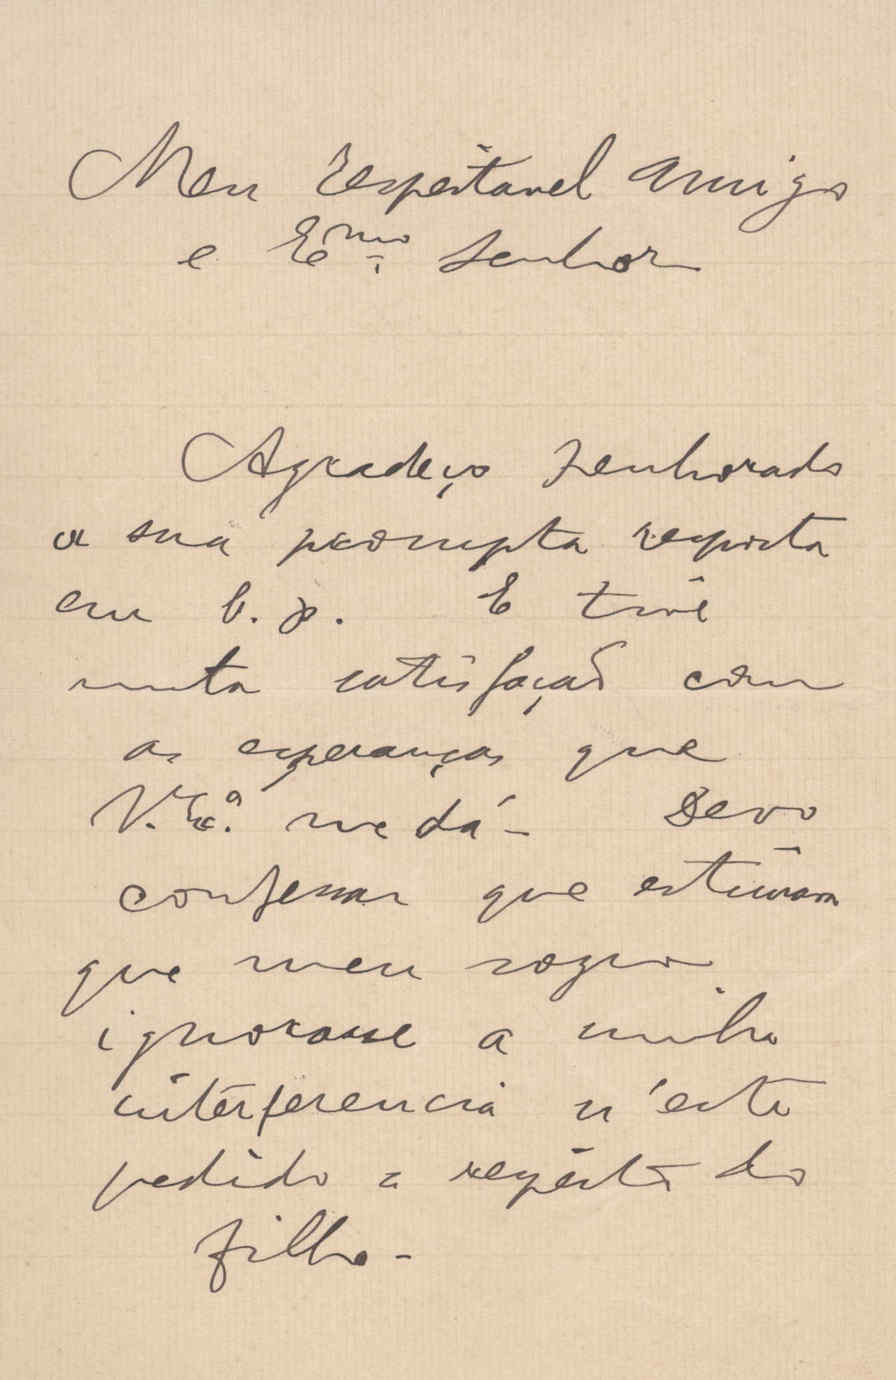 Meu respeitavel Amigo
e Exmo Senhor
Agradeço penhorado
a sua prompta resposta
em b. p. E tive
muita satisfação com
as esperanças que
V. Exª. me dá-  Devo
confessar que estimava
que meu sogro
ignorasse a minha
interferencia n'este
pedido a respeito do
filho-